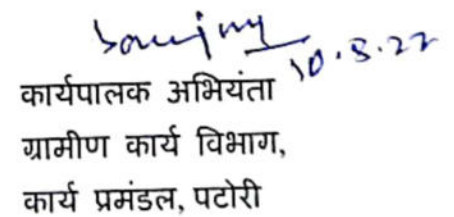 10.8.22
कार्यपालक अभियंता
ग्रामीण कार्य विभाग,
कार्य प्रमंडल, पटोरी